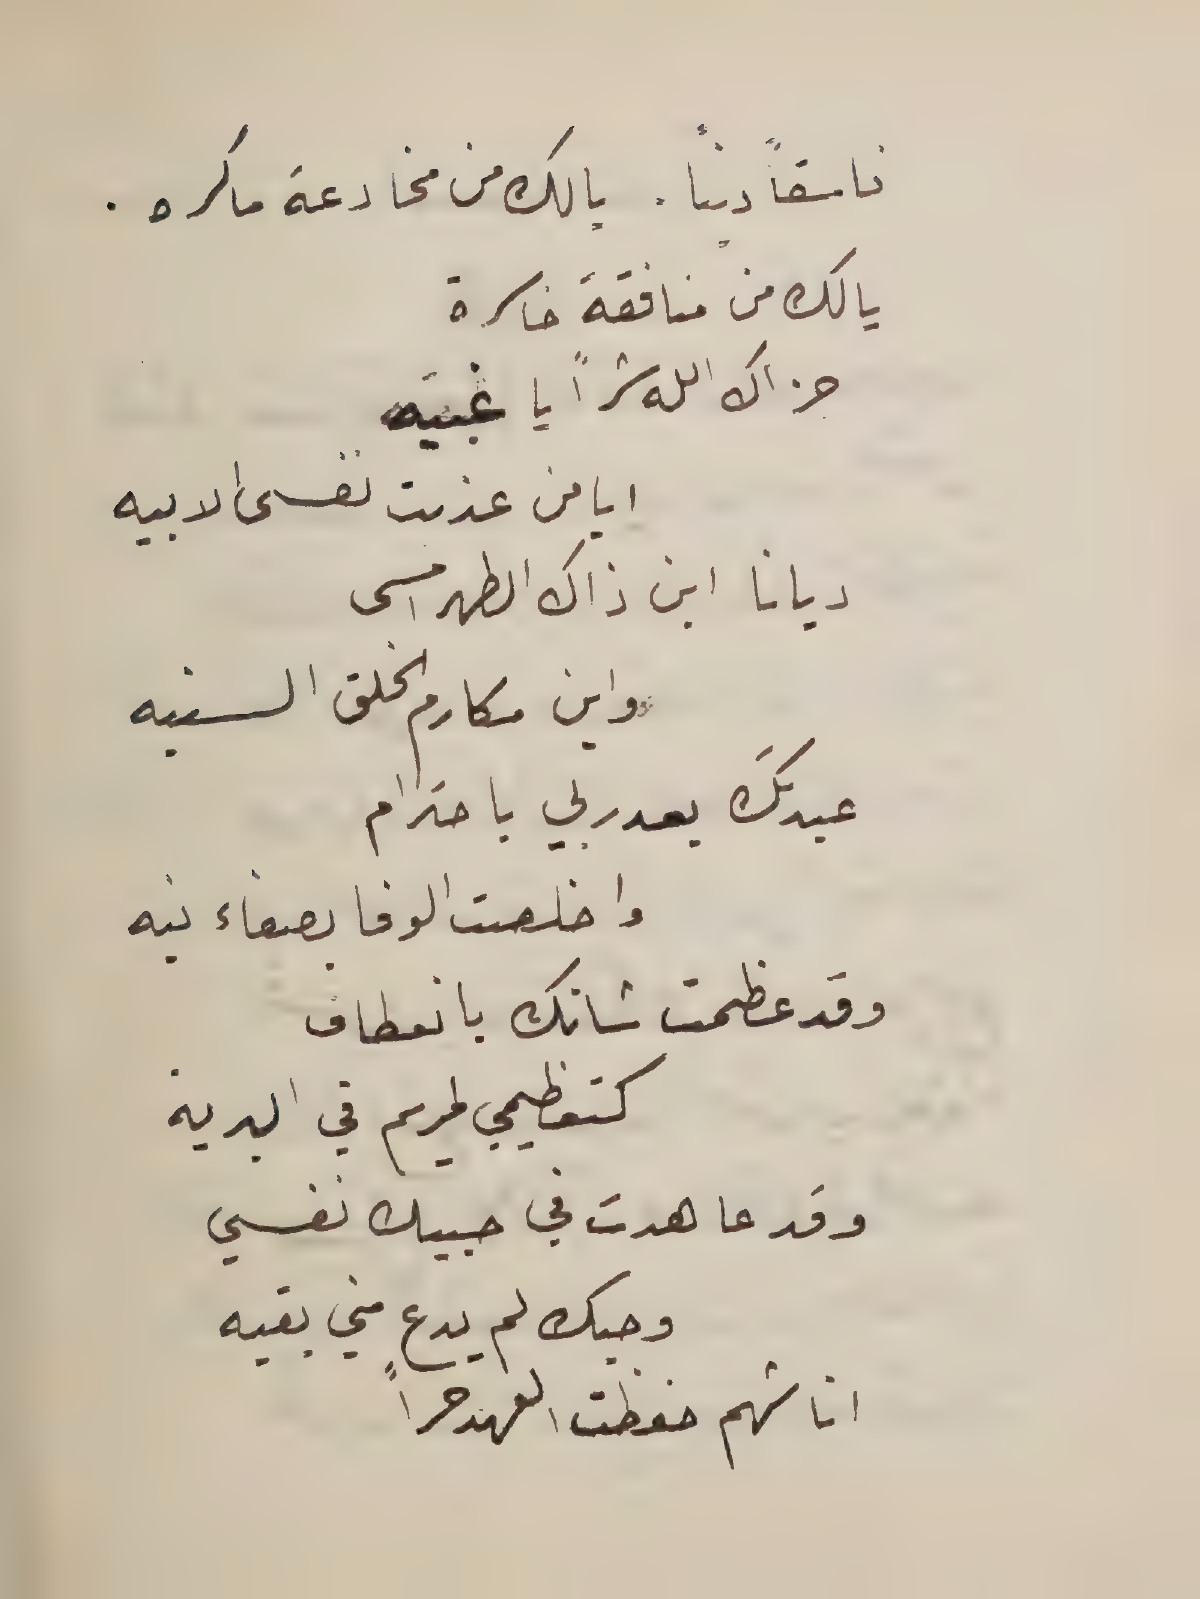 فاسقاً دنيئاً . يالك من مخادعة ماكره .
يالك من منافقة خاكرة
جزاك الله شراً يا غبيه
ايا من عذبت نفسى الابيه
ديانا اين ذاك الطهر امسى
واين مكارم الخلق السنيه
عبدتكَ بعد ربي باحترام
واخلصت الوفا بصفاء نيه
وقد عظمت شانك بانعطاف
كتعظيمي لمريم في البرية
وقد عاهدت في حبيك نفسي
وحبك لم يدع مني بقيه
انا شهم حفظت العهد حراً